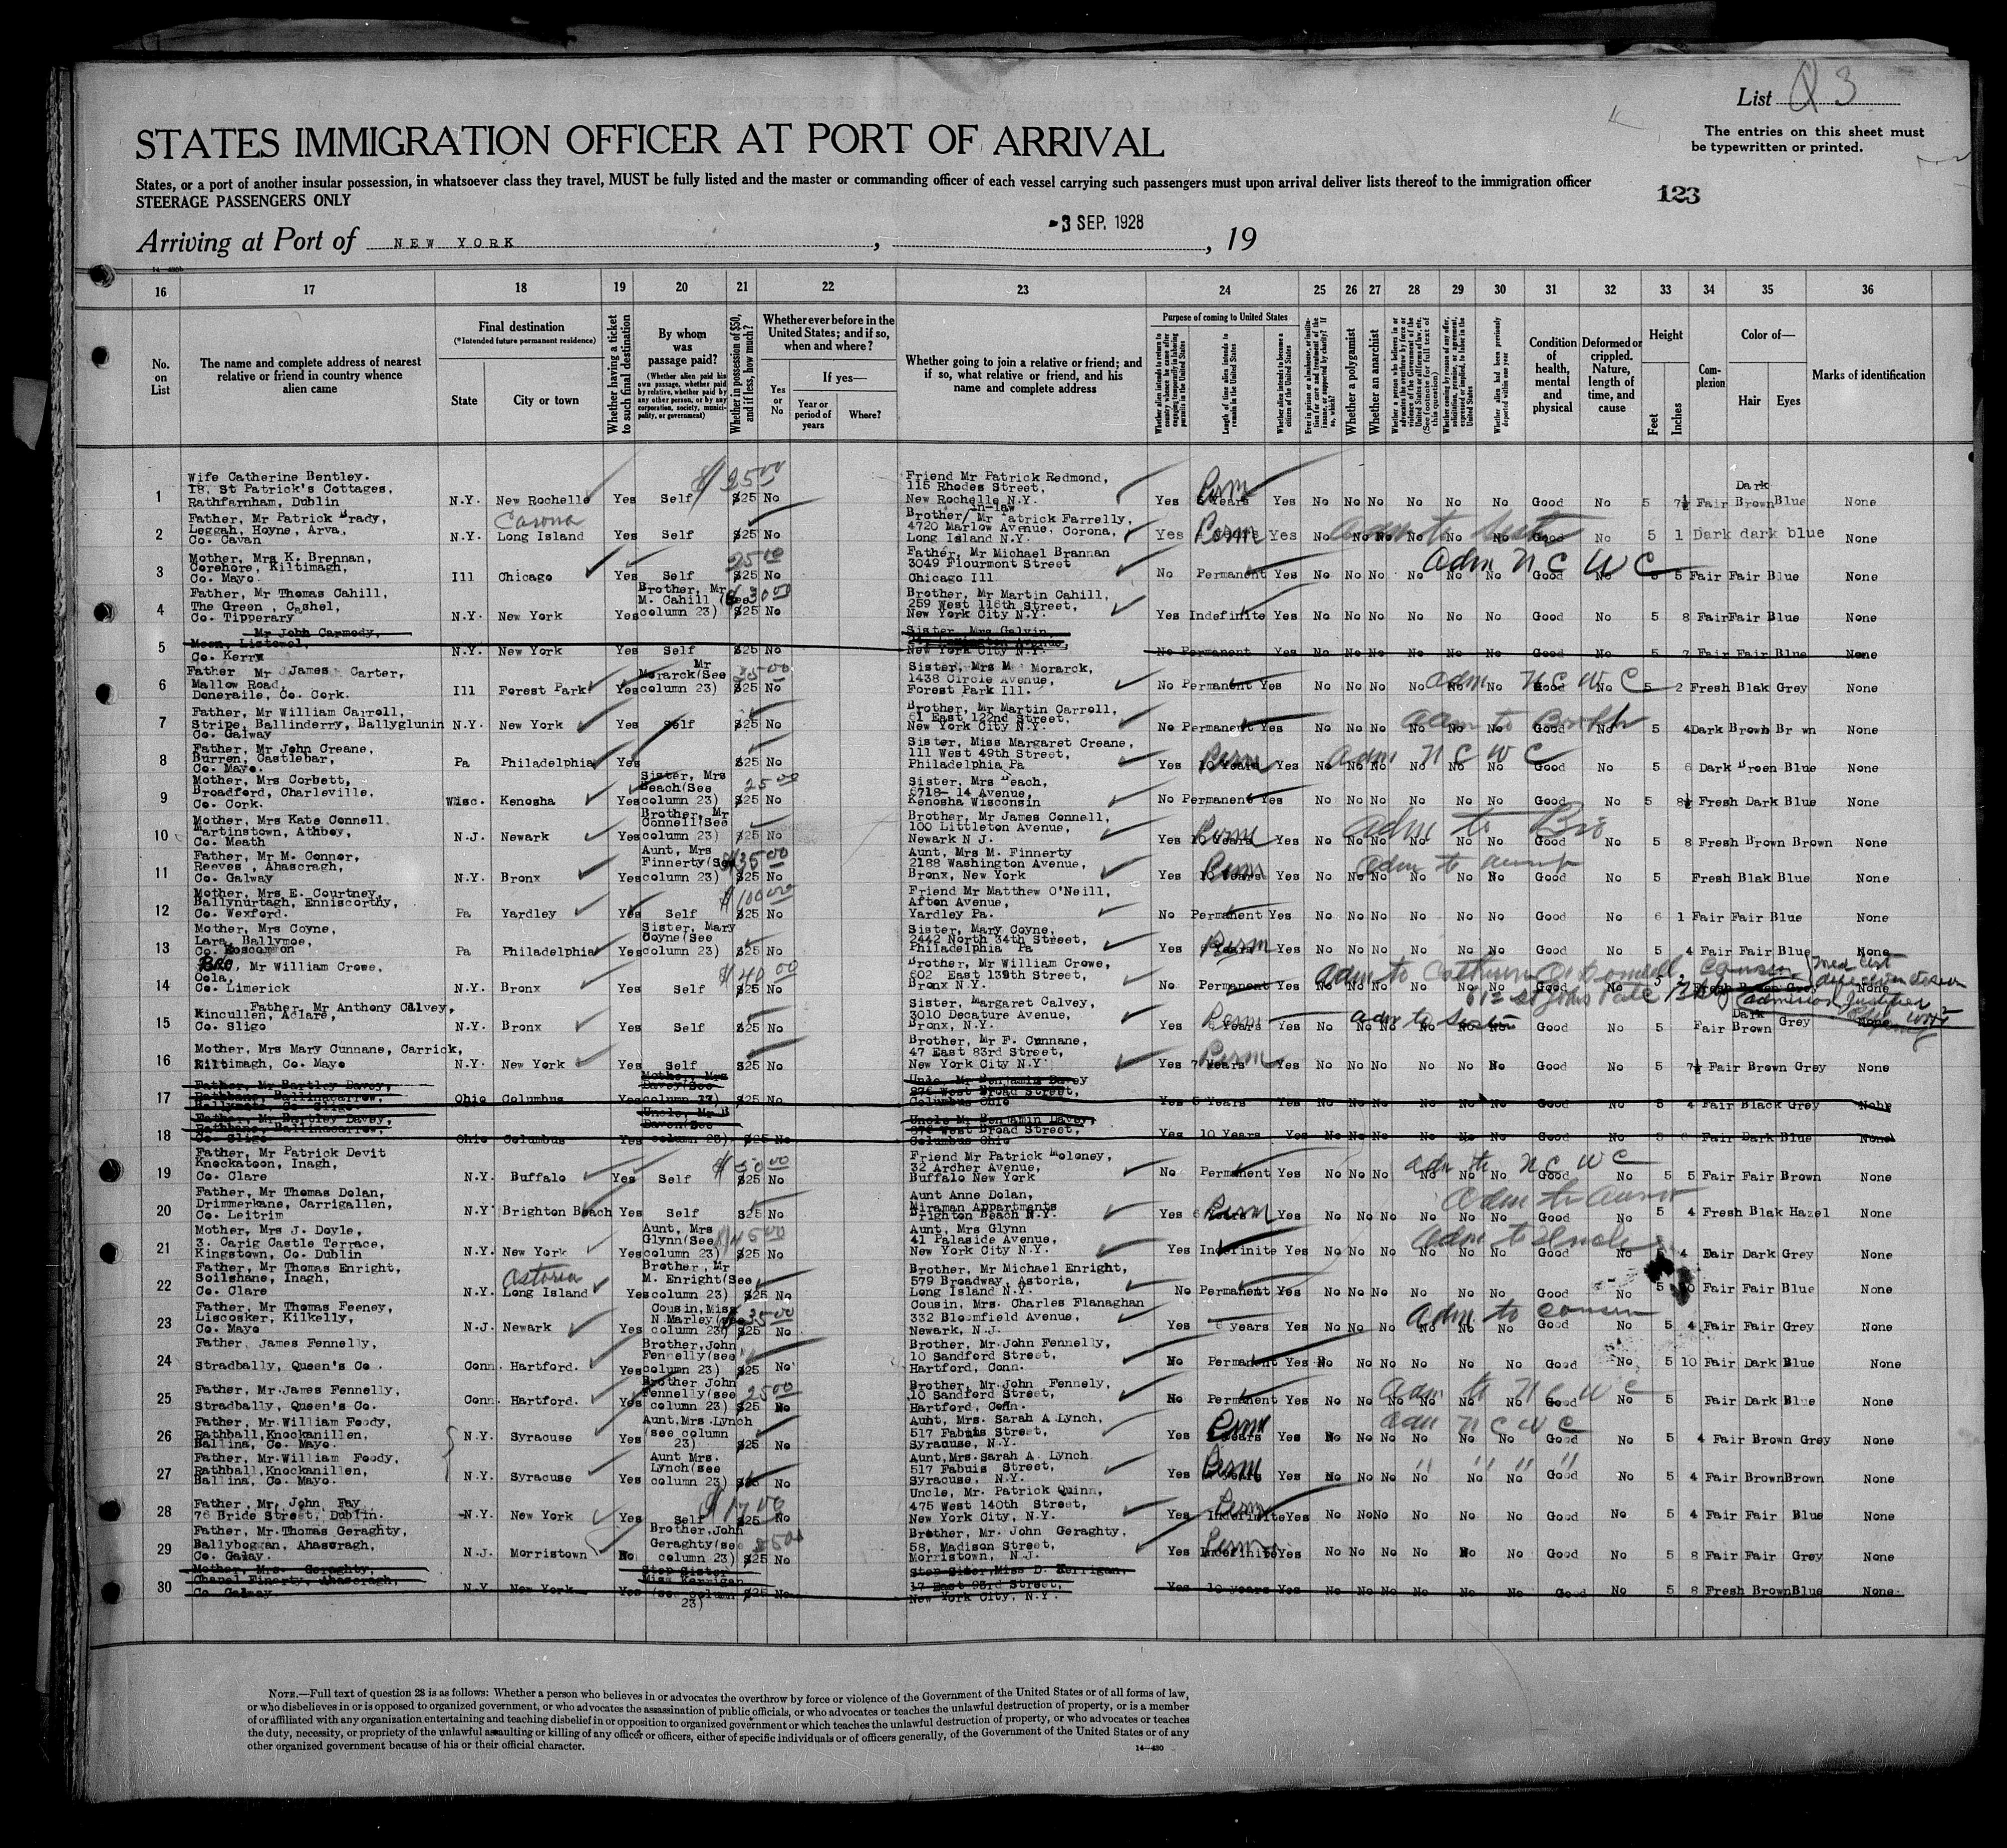 List 3
The entries on this sheet must
be typewritten or printed.
STATES IMMIGRATION OFFICER AT PORT OF ARRIVAL
States, or a port of another insular possession, in whatsoever class they travel, MUST be fully listed and the master or commanding officer of each vessel carrying such passengers must upon arrival deliver lists thereof to the immigration officer
STEERAGE PASSENGERS ONLY
123
Arriving at Port of NEW YORK, -3 SEP. 1928, 19
16 17 18 19 20 21 22 23 24 25 26 27 28 29 30 31 32 33 34 35 36
No. on List
The name and complete address of nearest relative or friend in country whence alien came
Final destination
(*Intended future permanent residence)
State
City or town
Whether having a ticket to such final destination
By whom was passage paid?
(Whether alien paid his own passage, whether paid by relative, whether paid by any other person, or by any corporation, society, municipality, or government)
Whether in possession of $50, and if less, how much?
Whether ever before in the United States; and if so, when and where?
Yes or No
If yes—
Year or period of years
Where?
Whether going to join a relative or friend; and if so, what relative or friend, and his name and complete address
Purpose of coming to United States
Length of time alien intends to remain in the United States
Whether alien intends to become a citizen of the United States
Whether a polygamist
Whether an anarchist
Condition of health, mental and physical
Deformed or crippled. Nature, length of time, and cause
Height
Feet
Inches
Complexion
Color of—
Hair
Eyes
Marks of identification
1 Wife Catherine Bentley. 18, St Patrick's Cottages, Rathfarnham, Dublin N.Y. New Rochelle Yes Self $25 No Friend Mr Patrick Redmond, 115 Rhodes Street, New Rochelle N.Y. Yes Perm Yes No No No No No No Good No 5 7½ Fair Dark Brown Blue None
2 Father, Mr Patrick Brady, Leggah, Hoyne, Arva, Co. Cavan N.Y. Corona Long Island Yes Self $25 No Brother in-law Mr Patrick Farrelly, 4720 Marlow Avenue, Corona, Long Island N.Y. Yes Perm Yes No No No No No No Good No 5 1 Dark dark blue None
3 Mother, Mrs K. Brennan, Corehore, Kiltimagh, Co. Mayo. Ill Chicago Yes Self 25 00 $25 No Father, Mr Michael Brannan 3049 Flourmont Street Chicago Ill No Permanent Yes No No No No No No Good No 5 5 Fair Fair Blue None adm N C W C
4 Father, Mr Thomas Cahill, The Green, Cashel, Co. Tipperary N.Y. New York Yes Brother, Mr M. Cahill (See column 23) $25 No Brother, Mr Martin Cahill, 259 West 116th Street, New York City N.Y. Yes Indefinite Yes No No No No No No Good No 5 8 Fair Fair Blue None
5 Mr John Carmody, Moon, Listowel, Co. Kerry N.Y. New York Yes Self $25 No Sister, Mrs Galvin, New York City N.Y. No Permanent Yes No No No No No No Good No 5 7 Fair Fair Blue None
6 Father Mr James Carter, Mallow Road, Doneraile, Co. Cork. Ill Forest Park Yes Mr Morarck (See column 23) $25 No Sister, Mrs M Morarck, 1438 Circle Avenue, Forest Park Ill. No Permanent Yes No No No No No No Good No 5 2 Fresh Blak Grey None adm N C W C
7 Father, Mr William Carroll, Stripe, Ballinderry, Ballyglunin Co. Galway N.Y. New York Yes Self $25 No Brother, Mr Martin Carroll, 61 East 122nd Street, New York City N.Y. No Permanent Yes No No No No No No Good No 5 4 Dark Brown Br wn None
8 Father, Mr John Creane, Burren, Castlebar, Co. Mayo. Pa Philadelphia Yes $25 No Sister, Miss Margaret Creane, 111 West 49th Street, Philadelphia Pa Yes 10 Years Perm Yes No No No No No No Good No 5 6 Dark Broen Blue None adm N C W C
9 Mother, Mrs Corbett, Broadford, Charleville, Co. Cork. Wisc. Kenosha Yes Sister, Mrs Beach(See column 23) 25 00 $25 No Sister, Mrs Beach, 5718- 14 Avenue, Kenosha Wisconsin No Permanent Yes No No No No No No Good No 5 8½ Fresh Dark Blue None
10 Mother, Mrs Kate Connell Martinstown, Athboy, Co. Meath N.J. Newark Yes Brother, Mr Connell(See column 23) $25 No Brother, Mr James Connell, 100 Littleton Avenue, Newark N J. Yes 10 Years Perm Yes No No No No No No Good No 5 8 Fresh Brown Brown None adm to Bro
11 Father, Mr M. Connor, Reeves, Ahascragh, Co. Galway N.Y. Bronx Yes Aunt, Mrs Finnerty(See column 23) $35 00 $25 No Aunt, Mrs M. Finnerty 2188 Washington Avenue, Bronx, New York Yes 10 Years Perm Yes No No No No No No Good No 5 Fresh Blak Blue None adm to aunt
12 Mother, Mrs E. Courtney, Ballynurtagh, Enniscorthy, Co. Wexford. Pa Yardley Yes Self $100 00 $25 No Friend Mr Matthew O'Neill, Afton Avenue, Yardley Pa. No Permanent Yes No No No No No No Good No 6 1 Fair Fair Blue None
13 Mother, Mrs Coyne, Lara, Ballymoe, Co. Roscommon Pa Philadelphia Yes Sister, Mary Coyne(See column 23) $25 No Sister, Mary Coyne, 2442 North 34th Street, Philadelphia Pa Yes Perm Yes No No No No No No Good No 5 4 Fair Fair Blue None
14 Bro, Mr William Crowe, Oola, Co. Limerick N.Y. Bronx Yes Self $40 00 $25 No Brother, Mr William Crowe, 602 East 139th Street, Bronx N.Y. No Permanent Yes No
15 Father, Mr Anthony Calvey, Kincullen, Aclare, Co. Sligo N.Y. Bronx Yes Self $25 No Sister, Margaret Calvey, 3010 Decature Avenue, Bronx, N.Y. Yes Perm Yes No adm to Sister Good No 5 Fair Dark Brown Grey None
16 Mother, Mrs Mary Cunnane, Carrick, Kiltimagh, Co. Mayo N.Y. New York Yes Self $25 No Brother, Mr F. Cunnane, 47 East 83rd Street, New York City N.Y. Yes 7 Years Perm Yes No No No No No No Good No 5 7½ Fair Brown Grey None
17 Father, Mr Bartley Davey, Rathbane, Ballinacarrow, Ballymote Co Sligo Ohio Columbus Yes Mother, Mrs Davey(See column 17) $25 No Uncle, Mr Benjamin Davey 876 West Broad Street, Columbus Ohio Yes 5 Years Yes No No No No No No Good No 5 4 Fair Black Grey None
18 Father, Mr Bartley Davey, Rathbane, Ballinacarrow, Co. Sligo Ohio Columbus Yes Uncle, Mr B Daven(See column 23) $25 No Uncle Mr Benjamin Davey, 876 West Broad Street, Columbus Ohio Yes 10 Years Yes No No No No No No Good No 5 Fair Dark Blue None
19 Father, Mr Patrick Devit Knockatoon, Inagh, Co. Clare N.Y. Buffalo Yes Self $50 00 $25 No Friend Mr Patrick Moloney, 32 Archer Avenue, Buffalo New York No Permanent Yes No No No No No No Good No 5 5 Fair Fair Brown None adm to N C W C
20 Father, Mr Thomas Dolan, Drimmerkane, Carrigallen, Co. Leitrim N.Y. Brighton Beach Yes Self $25 No Aunt Anne Dolan, Miraman Appartments Brighton Beach N.Y. Yes Perm Yes No No No No No No Good No 5 4 Fresh Blak Hazel None adm to aunt
21 Mother, Mrs J. Doyle, 3. Carig Castle Terrace, Kingstown, Co. Dublin N.Y. New York Yes Aunt, Mrs Glynn(See column 23) $45 00 $25 No Aunt, Mrs Glynn 41 Palaside Avenue, New York City N.Y. Yes Indefinite Yes No No No No No No Good No 5 4 Fair Dark Grey None adm to Uncle
22 Father, Mr Thomas Enright, Soilshane, Inagh, Co. Clare N.Y. Astoria Long Island Yes Brother, Mr M. Enright(See column 23) $25 No Brother, Mr Michael Enright, 579 Broadway, Astoria, Long Island N.Y. No Permanent Yes No No No No No No Good No 5 Fair Fair Blue None
23 Father, Mr Thomas Feeney, Liscosker, Kilkelly, Co. Mayo N.J. Newark Yes Cousin, Miss N Marley (see column 23) 35 00 $25 No Cousin, Mrs. Charles Flanaghan 332 Bloomfield Avenue, Newark, N.J. Yes years Yes No No No No No No Good No 5 4 Fair Fair Grey None adm to cousin
24 Father, James Fennelly, Stradbally, Queen's Co. Conn. Hartford. Yes Brother, John Fennelly(see column 23) $25 No Brother, Mr. John Fennelly, 10 Sandford Street, Hartford, Conn. No Permanent Yes No No No No No No Good No 5 10 Fair Dark Blue None
25 Father, Mr. James Fennelly, Stradbally, Queen's Co. Conn. Hartford. Yes Brother John Fennelly(see column 23) 25 00 $25 No Brother, Mr. John Fennely, 10 Sandford Street, Hartford, Conn. No Permanent Yes No No No No No No Good No 5 Fair Dark Blue None adm to N C W C
26 Father, Mr. William Foody, Rathball, Knockanillen, Ballina, Co. Mayo. N.Y. Syracuse Yes Aunt, Mrs. Lynch (see column 23) $25 No Aunt, Mrs. Sarah A Lynch, 517 Fabuis Street, Syracuse, N.Y. Yes Perm Yes No No No No No No Good No 5 4 Fair Brown Grey None adm N C W C
27 Father, Mr. William Foody, Rathball, Knockanillen, Ballina, Co. Mayo. N.Y. Syracuse Yes Aunt Mrs. Lynch(see column 23) $25 No Aunt, Mrs. Sarah A Lynch. 517 Fabuis Street, Syracuse, N.Y. Yes Perm Yes No No No No No No Good No 5 4 Fair Brown Brown None
28 Father, Mr. John Fay, 76 Bride Street, Dublin. N.Y. New York Yes Self $17 00 $25 No Uncle, Mr. Patrick Quinn, 475 West 140th Street, New York City, N.Y. Yes Indefinite Perm Yes No No No No No No Good No 5 4 Fair Fair Blue None
29 Father, Mr. Thomas Geraghty, Ballyboggan, Ahascragh, Co. Galay. N.J. Morristown No Brother, John Geraghty(see column 23) $25 No Brother, Mr. John Geraghty, 58, Madison Street, Morristown, N.J. Yes Indefinite Perm Yes No No No No No No Good No 5 8 Fair Fair Grey None
30 Mother, Mrs. Geraghty, Chapel Finerty, Ahascragh, Co. Galway. N.Y. New York Yes Step Sister Miss Kerrigan (see column 23) $25 No Step Siter, Miss D. Kerrigan, 17 East 93rd Street, New York City, N.Y. Yes 10 years Yes No No No No No No Good No 5 8 Fresh Brown Blue None.
NOTE.—Full text of question 28 is as follows: Whether a person who believes in or advocates the overthrow by force or violence of the Government of the United States or of all forms of law,
or who disbelieves in or is opposed to organized government, or who advocates the assassination of public officials, or who advocates or teaches the unlawful destruction of property, or is a member
of or affiliated with any organization entertaining and teaching disbelief in or opposition to organized government or which teaches the unlawful destruction of property, or who advocates or teaches
the duty, necessity, or propriety of the unlawful assaulting or killing of any officer or officers, either of specific individuals or of officers generally, of the Government of the United States or of any
other organized government because of his or their official character.
14—480